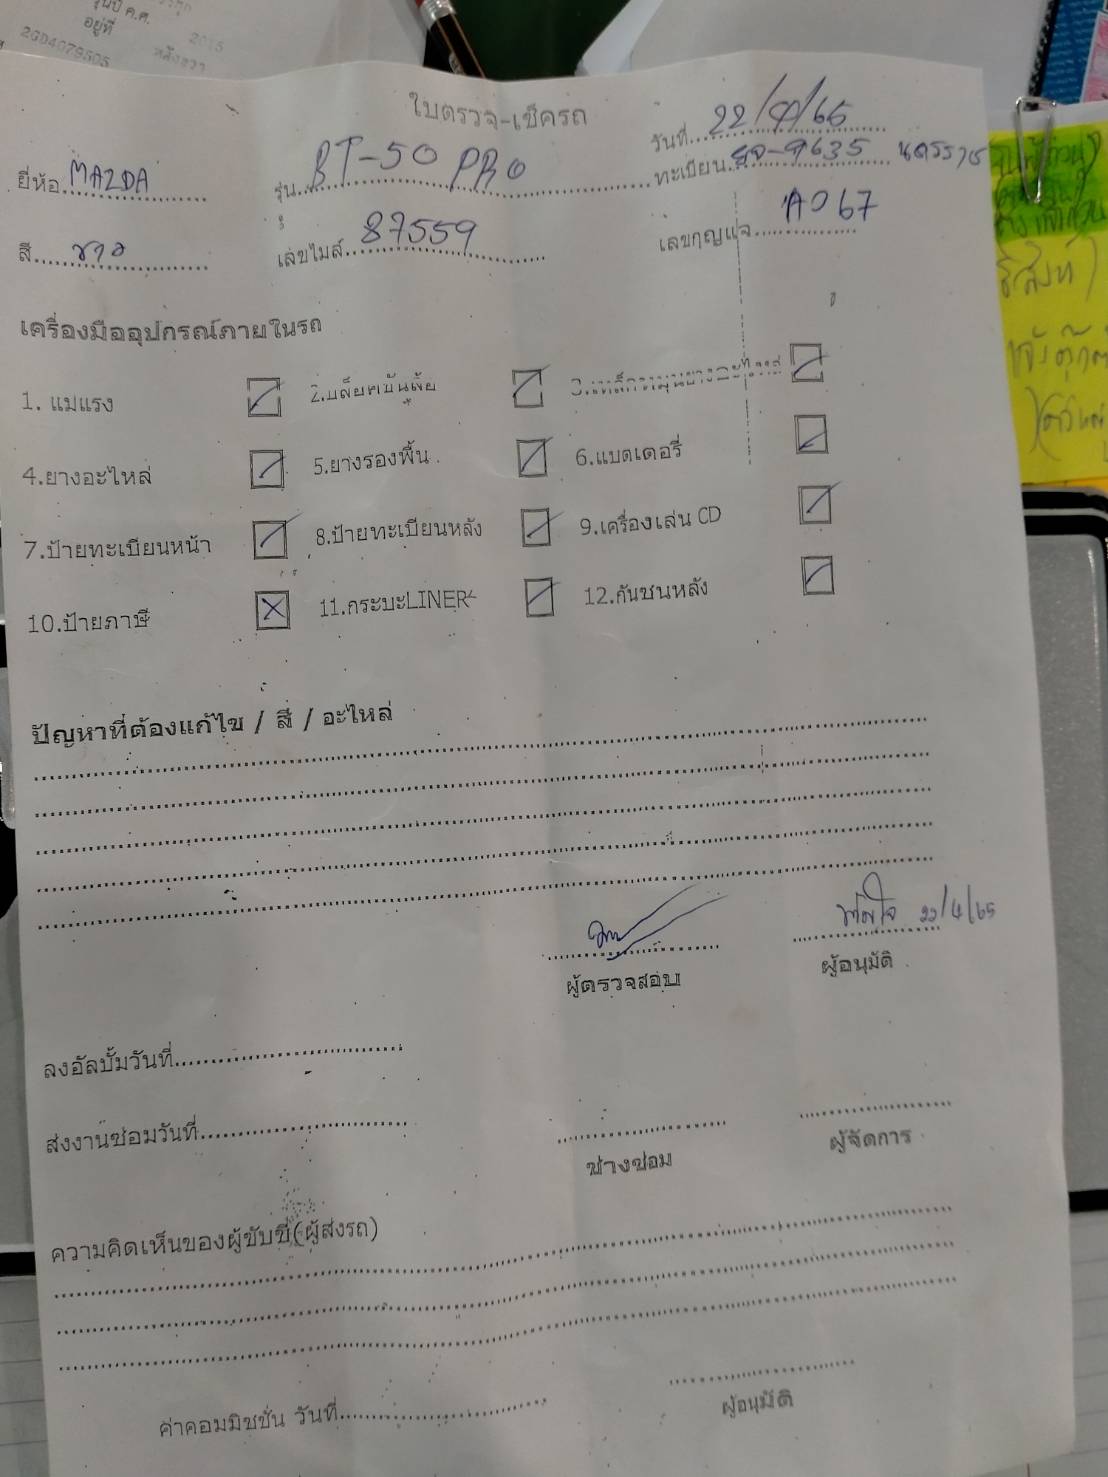 รุ่นปี ค.ศ. 2015
อยู่ที่
2GD4079505
ใบตรวจ-เช็ครถ
วันที่ 22/4/65
ยี่ห้อ MAZDA รุ่น BT-50 PRO ทะเบียน 9635
สี ขาว เลขไมล์ 87559 เลขกุญแจ A067
เครื่องมืออุปกรณ์ภายในรถ
1. แม่แรง 2.บล็อคขันล้อ 3.เหล็กหมุนยางอะไหล่
4.ยางอะไหล่ 5.ยางรองพื้น 6.แบตเตอรี่
7.ป้ายทะเบียนหน้า 8.ป้ายทะเบียนหลัง 9.เครื่องเล่น CD
10.ป้ายภาษี 11.กระบะLINER 12.กันชนหลัง
ปัญหาที่ต้องแก้ไข / สี / อะไหล่
22/4/65
ผู้ตรวจสอบ ผู้อนุมัติ
ลงอัลบั้มวันที่
ส่งงานซ่อมวันที่
ช่างซ่อม ผู้จัดการ
ความคิดเห็นของผู้ขับขี่(ผู้ส่งรถ)
ค่าคอมมิชชั่น วันที่ ผู้อนุมัติ